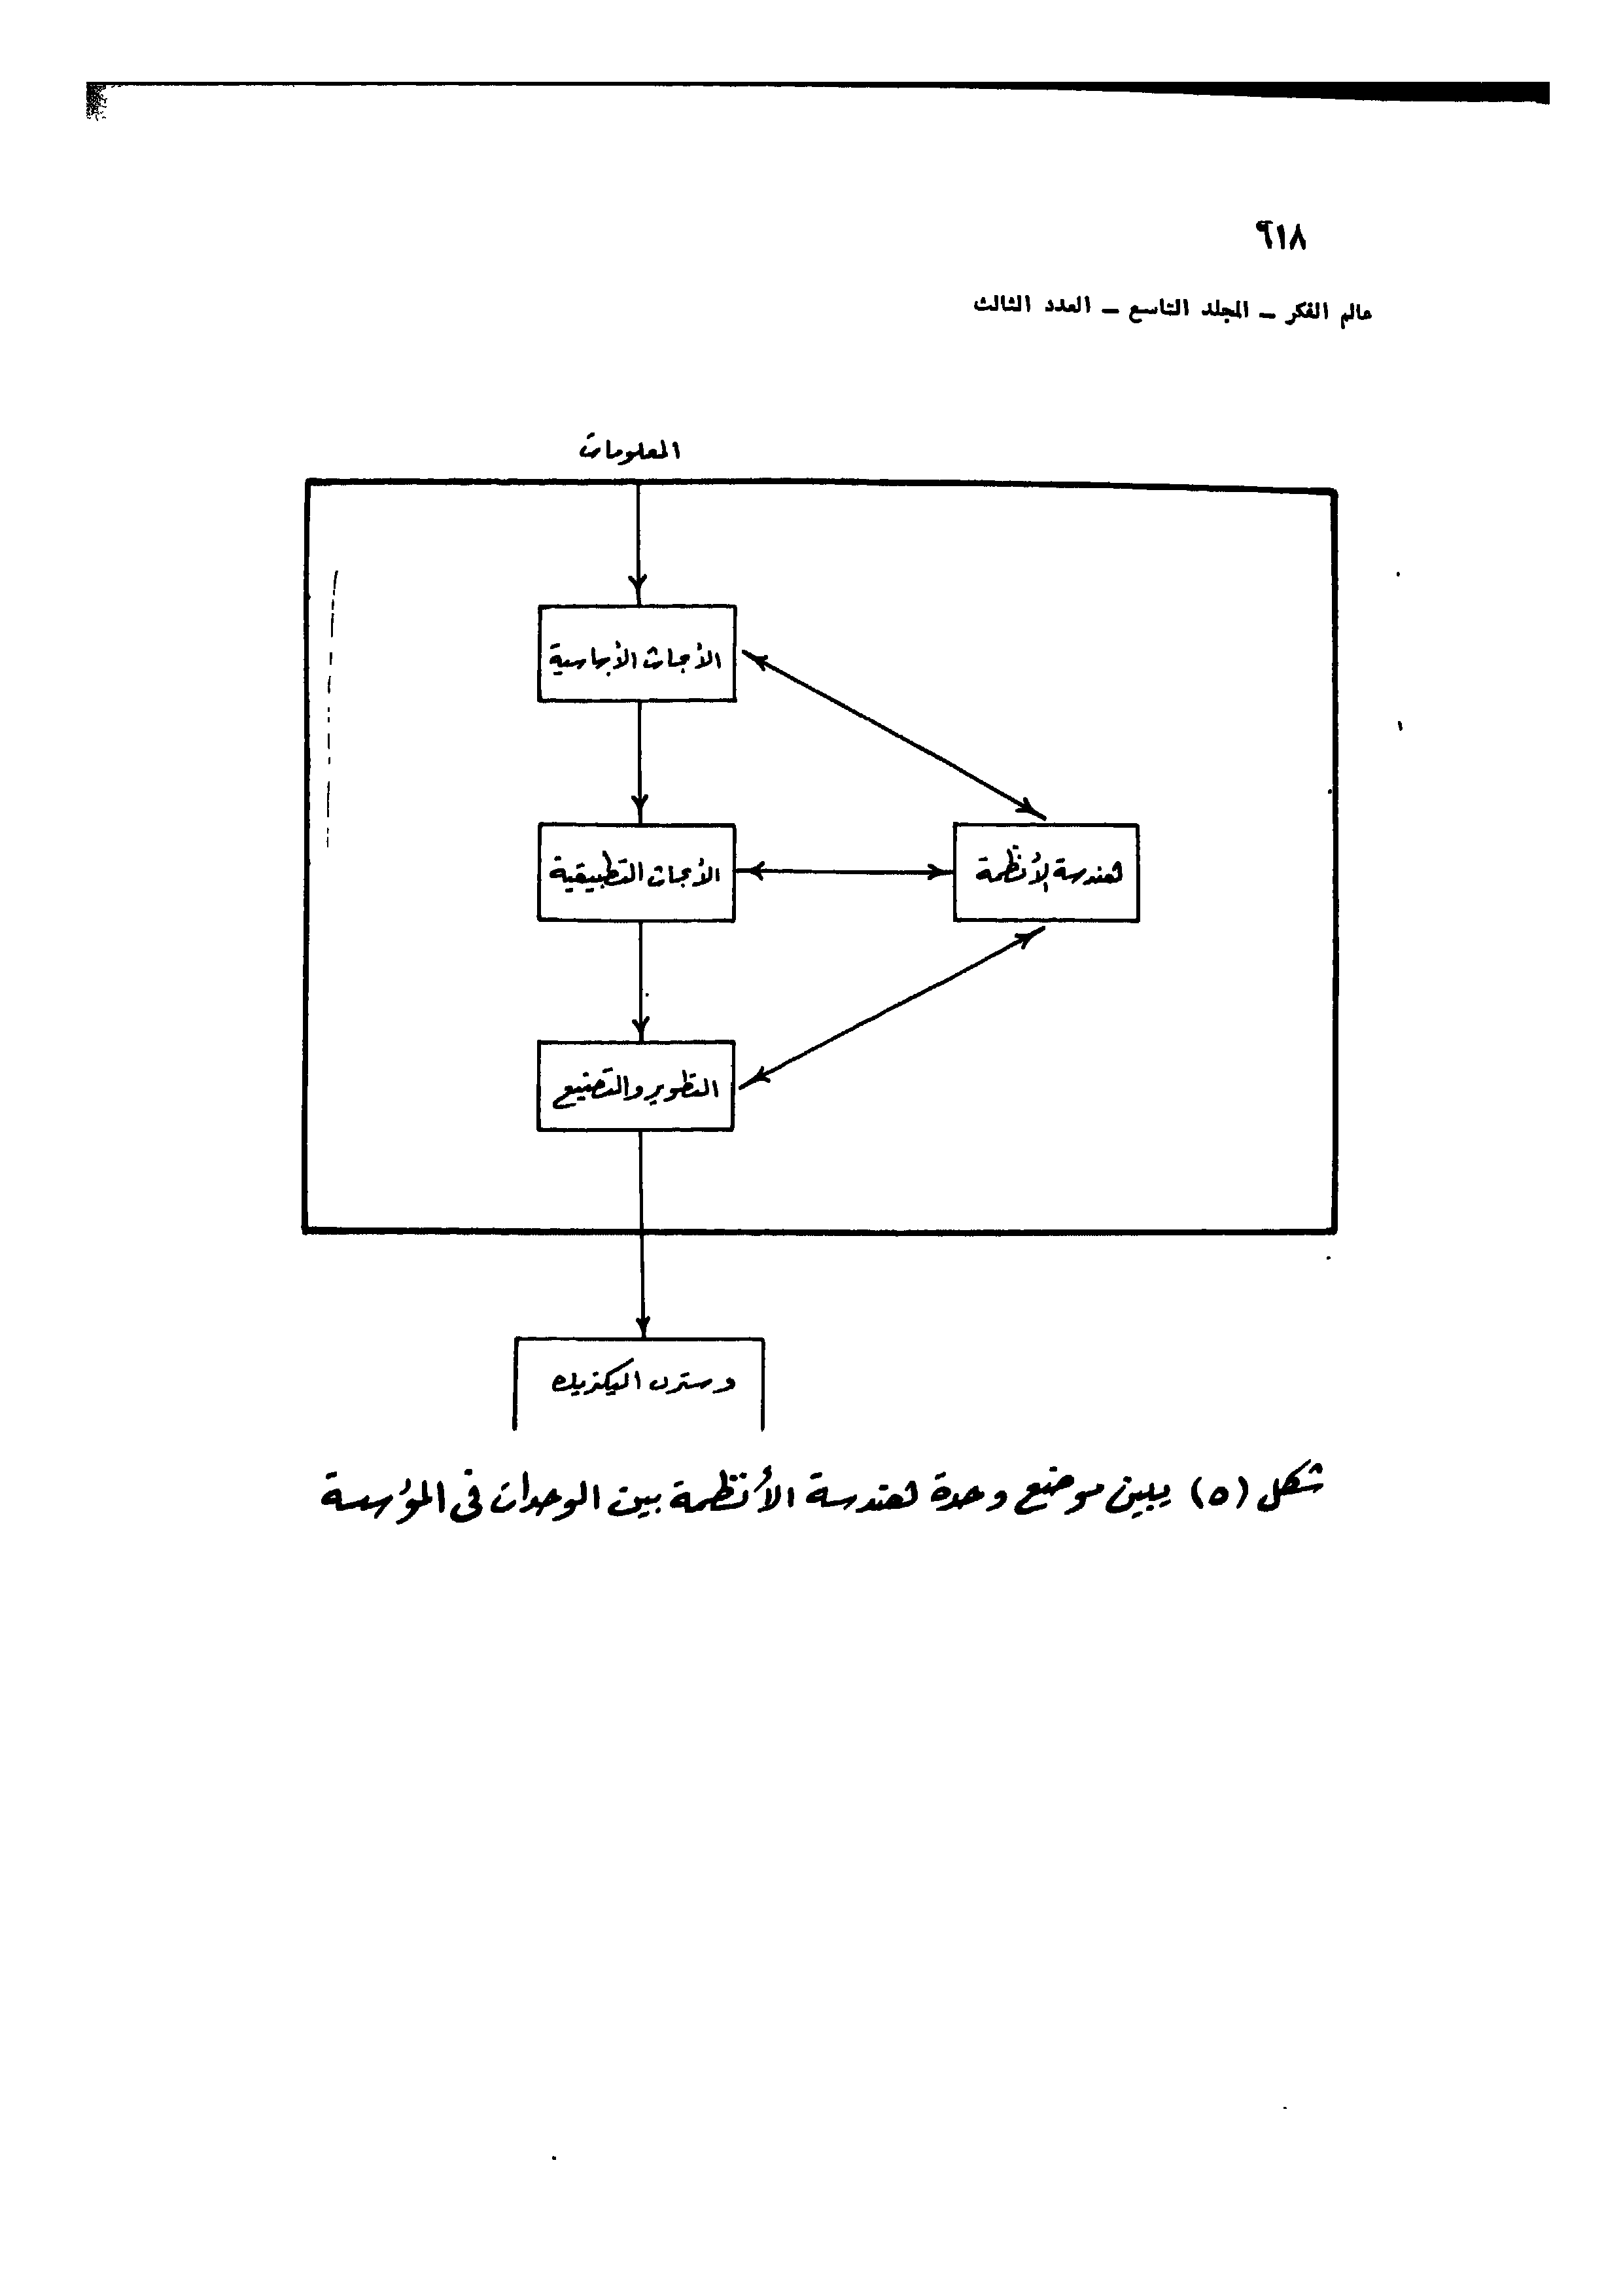 ٩١٨
عالم الفكر ــ المجلد التاسع ــ العدد الثالث
المعلومات
الأبحاث الأساسية
الأبحاث التطبيقية
هندسة الأنظمة
التطوير والتصنيع
وسترن اليكتريك
شكل (٥) يبين موضع وحدة هندسة الأنظمة بين الوحدات في المؤسسة